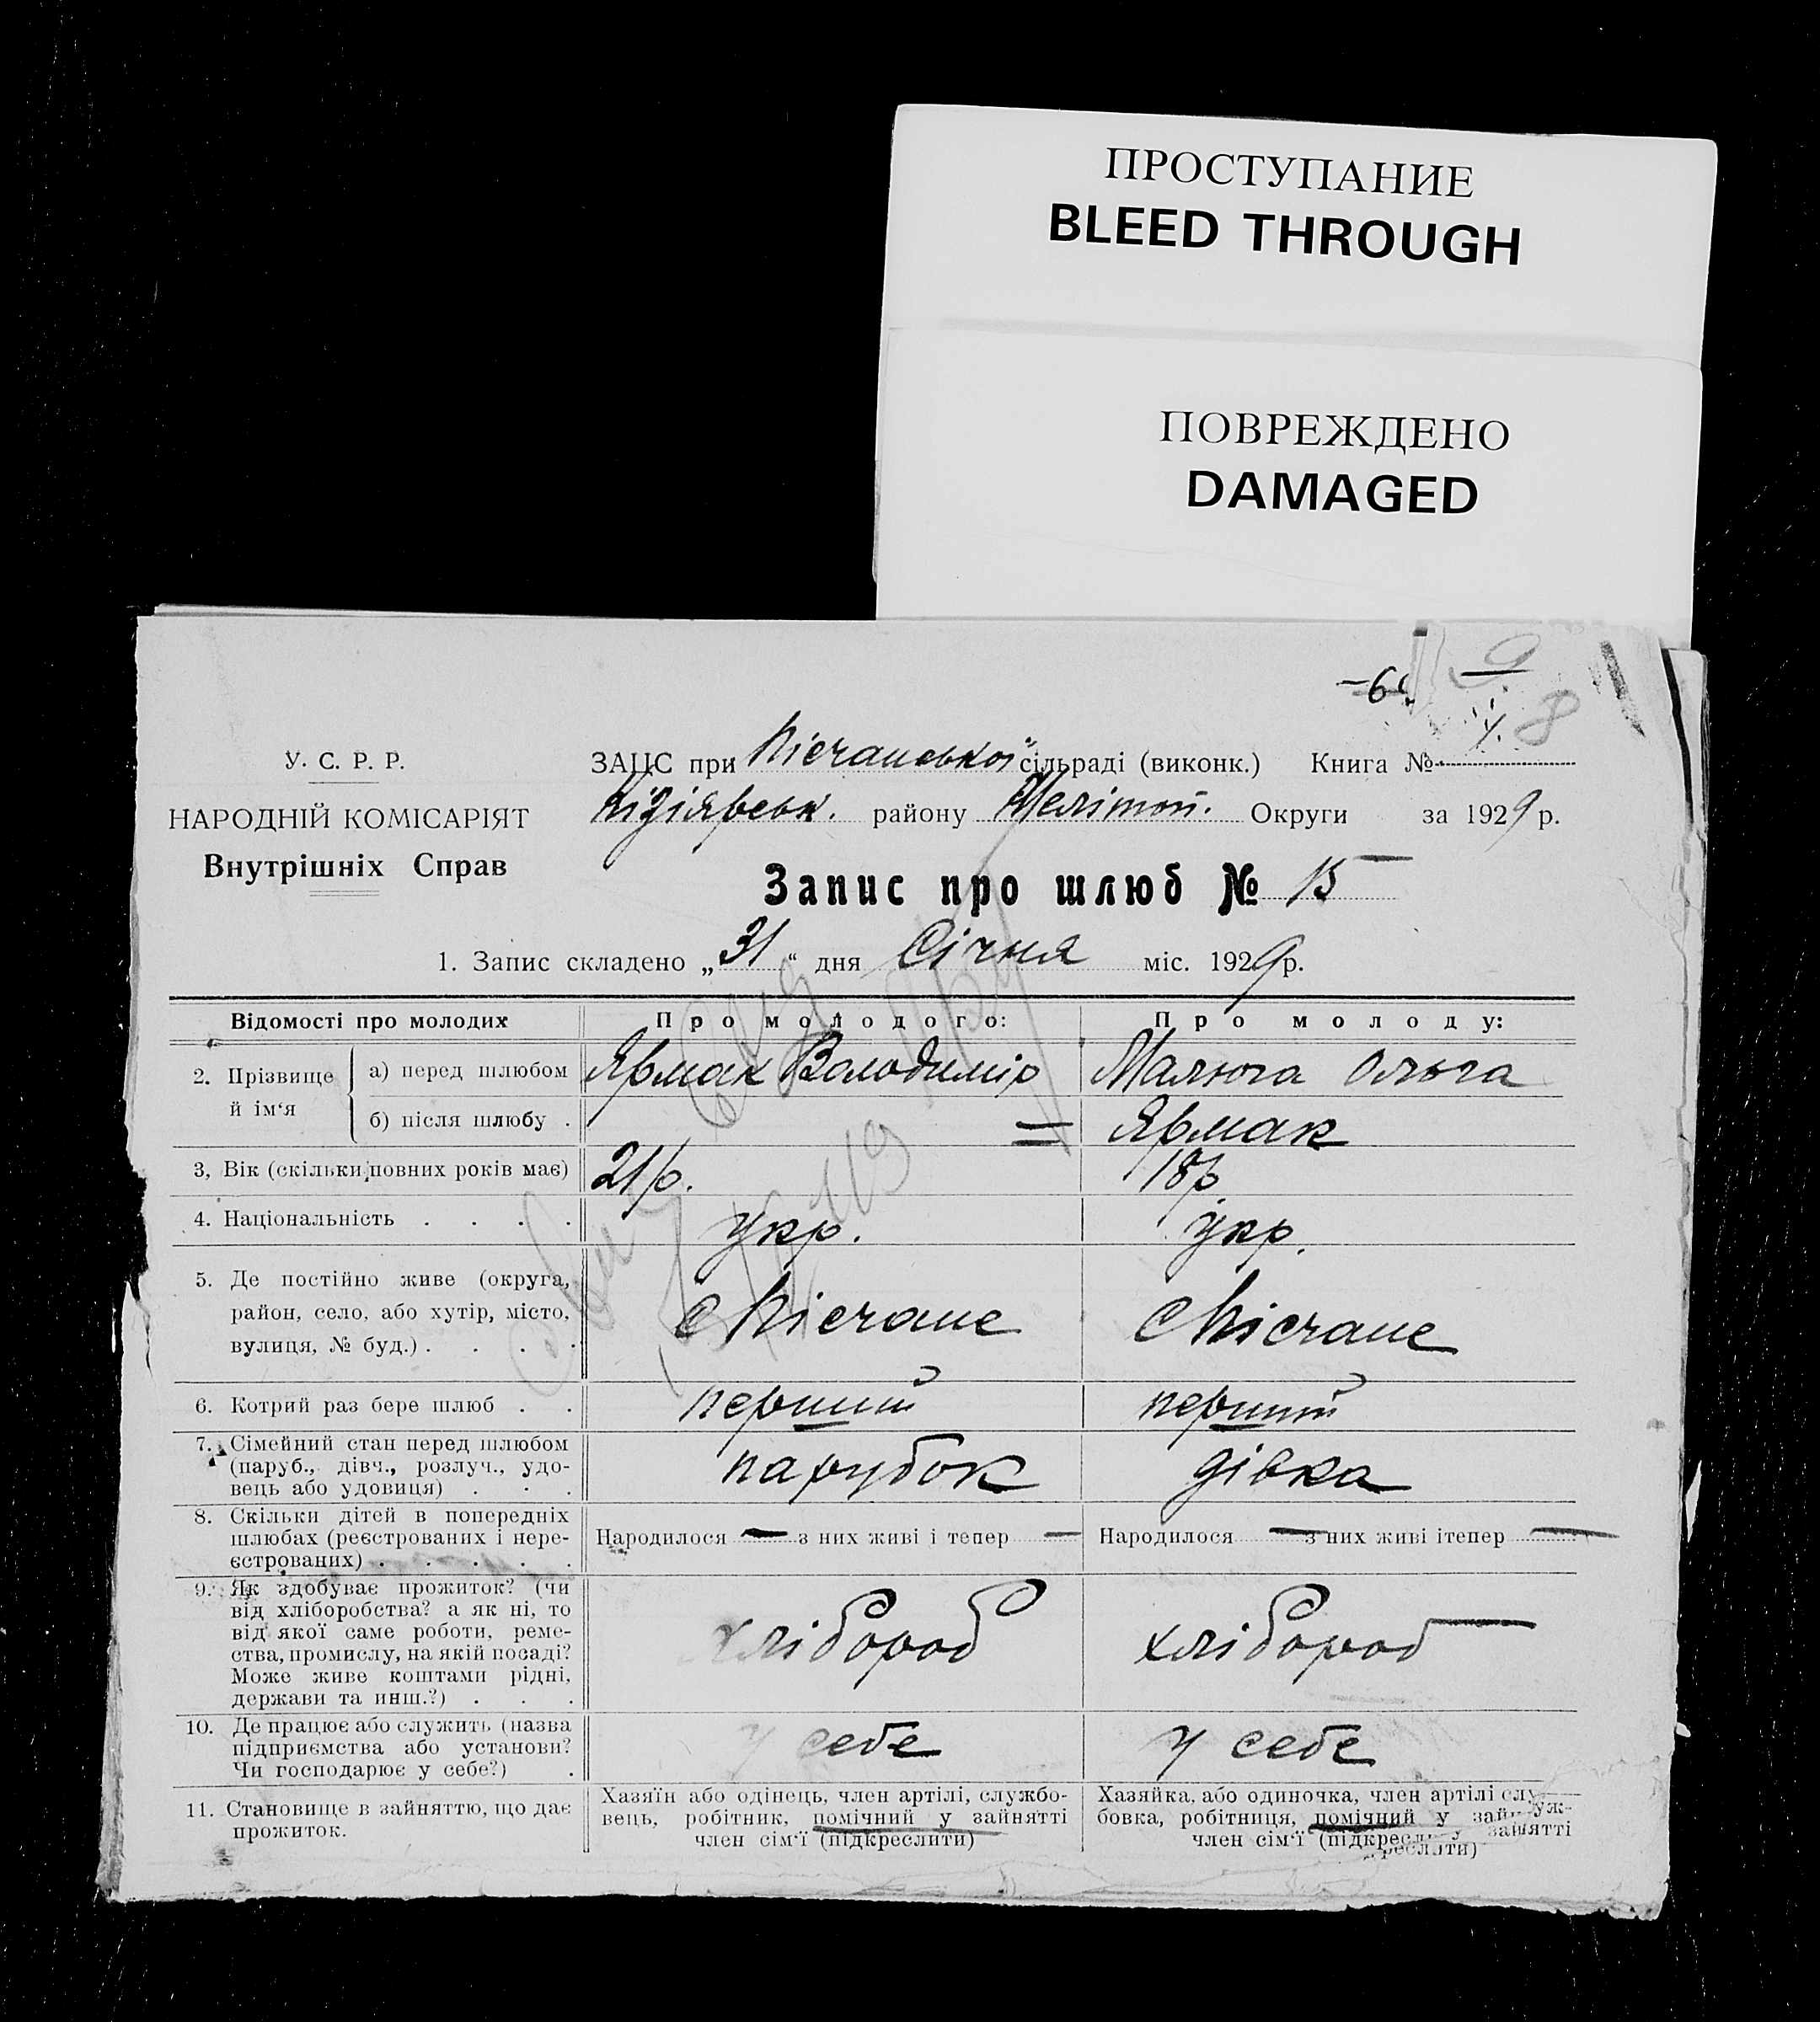 ПРОСТУПАНИЕ
BLEED THROUGH
ПОВРЕЖДЕНО
DAMAGED
У. С. Р. Р.
НАРОДНІЙ КОМІСАРІЯТ
Внутрішніх Справ
8
ЗАЦС при Пісчанської сільраді (виконк.) Книга №
Кізіярськ. району Мелітоп. Округи за 1929 р.
Запис про шлюб № 15
1. Запис складено „31“ дня Січня міс. 1929 р.
Відомості про молодих
Про молодого:
Про молоду:
2. Прізвище й ім‘я
а) перед шлюбом
Ярмак Володимір
Малюга Ольга
б) після шлюбу .
=
Ярмак
3, Вік (скільки повних років має)
21 р.
18 р
4. Національність . . . .
укр.
укр.
5. Де постійно живе (округа,
район, село, або хутір, місто,
вулиця, № буд.) . . . .
с Пісчане
с Пісчане
6. Котрий раз бере шлюб . .
перший
перший
7. Сімейний стан перед шлюбом
(паруб., дівч., розлуч., удо-
вець або удовиця) . . .
парубок
дівка
8. Скільки дітей в попередніх
шлюбах (реєстрованих і нере-
єстрованих) . . . . .
Народилося — з них живі і тепер —
Народилося — з них живі ітепер —
9. Як здобуває прожиток? (чи
від хліборобства? а як ні, то
від якої саме роботи, реме-
ства, промислу, на якій посаді?
Може живе коштами рідні,
держави та инш.?) . . .
хлібороб
хлібороб
10. Де працює або служить (назва
підприємства або установи?
Чи господарює у себе?) .
у себе
у себе
11. Становище в зайняттю, що дає
прожиток.
Хазяїн або одінець, член артілі, службо-
вець, робітник, помічний у зайнятті
член сім‘ї (підкреслити)
Хазяйка, або одиночка, член артілі служ-
бовка, робітниця, помічний у зайнятті
член сім‘ї (підкреслити)